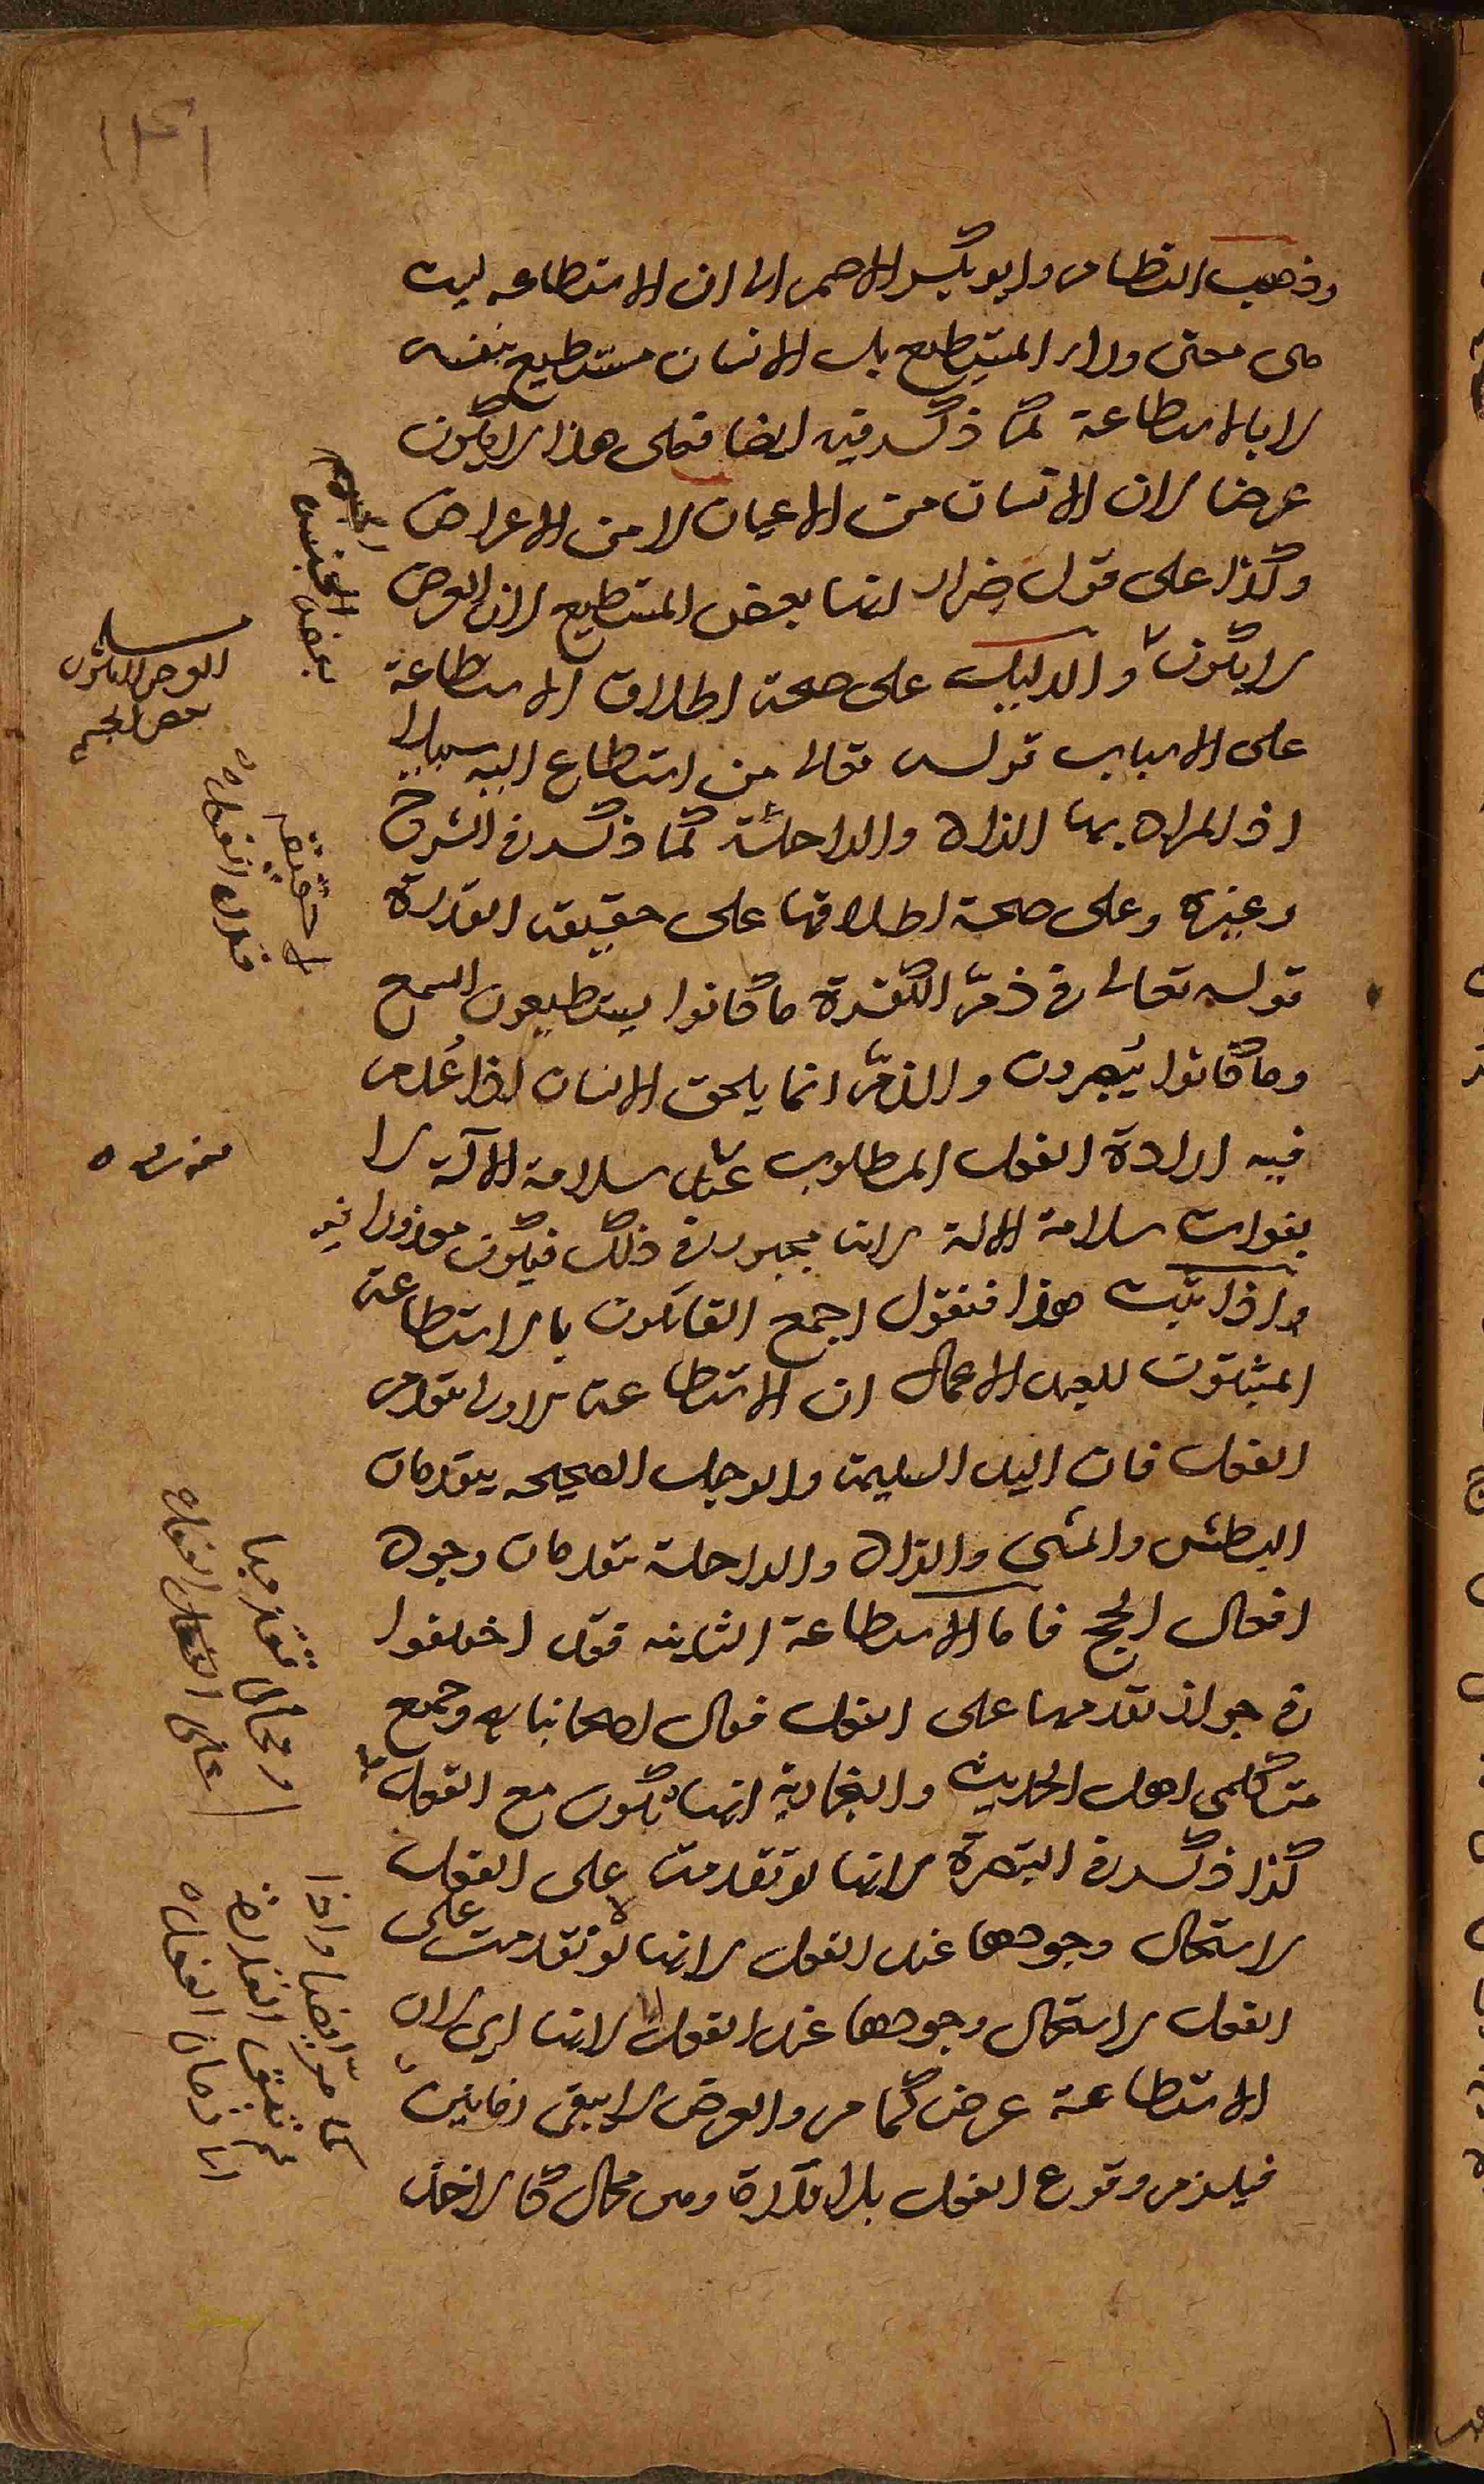 وذهب النظام وابو بكر الاصم الى ان الاستطاعة ليست
هى معنى وراء المستطيع بل الانسان مستطيع بنفسه
لا بالاستطاعة كما ذكر فيه ايضا فعلى هذا لا يكون
عرضا لان الانسان من الاعيان لا من الاعراض
وكذا على قول ضرار انها بعض المستطيع لان العرض
لا يكون والدليل على صحة اطلاق الاستطاعة
على الاسباب قوله تعالى من استطاع اليه سبيلا
اذ المراد بها الزاد والراحلة كما ذكر فى الشروح
وغيره وعلى صحة اطلاقها على حقيقة القدرة
قوله تعالى فى ذم الكفرة ما كانوا يستطيعون السمع
وما كانوا يُبصرون والذم انما يلحق الانسان اذا عُدم
فيه ارادة الفعل المطلوب عند سلامة الآلة لا
بفوات سلامة الالة لانه مجبور فى ذلك فيكون معذورا فيه
واذا ثبت هذا فنقول اجمع القائلون بالاستطاعة
المثبتون للعبد الاعمال ان الاستطاعة الاولى تتقدم
الفعل فان اليد السليمة والرجل الصحيحة يتقدمان
البطش والمشى والزاد والراحلة يتقدمان وجود
افعال الحج فاما الاستطاعة الثانية فقد اختلفوا
فى جواز تقدمها على الفعل فقال اصحابنا وجميع
متكلمى اهل الحديث والنجارية انها تكون مع الفعل
كذا ذكر فى التبصرة لانها لو تقدمت على الفعل
لاستحال وجودها عند الفعل لانها لو تقدمت على
الفعل لاستحال وجودها عند الفعل لانها اى لان
الاستطاعة عرض كما مر والعرض لا يبقى زمانين
فيلزم وقوع الفعل بلا قدرة وهى محال كالاخذ
بعض الجنس
العرض لا يكون
بعض الجسم
حقيقة
قدرة الفعل
معذوره
ومحال تقدمها
على الفعل
كما مر ايضا واذا
لم تبق القدرة
الى زمان الفعل